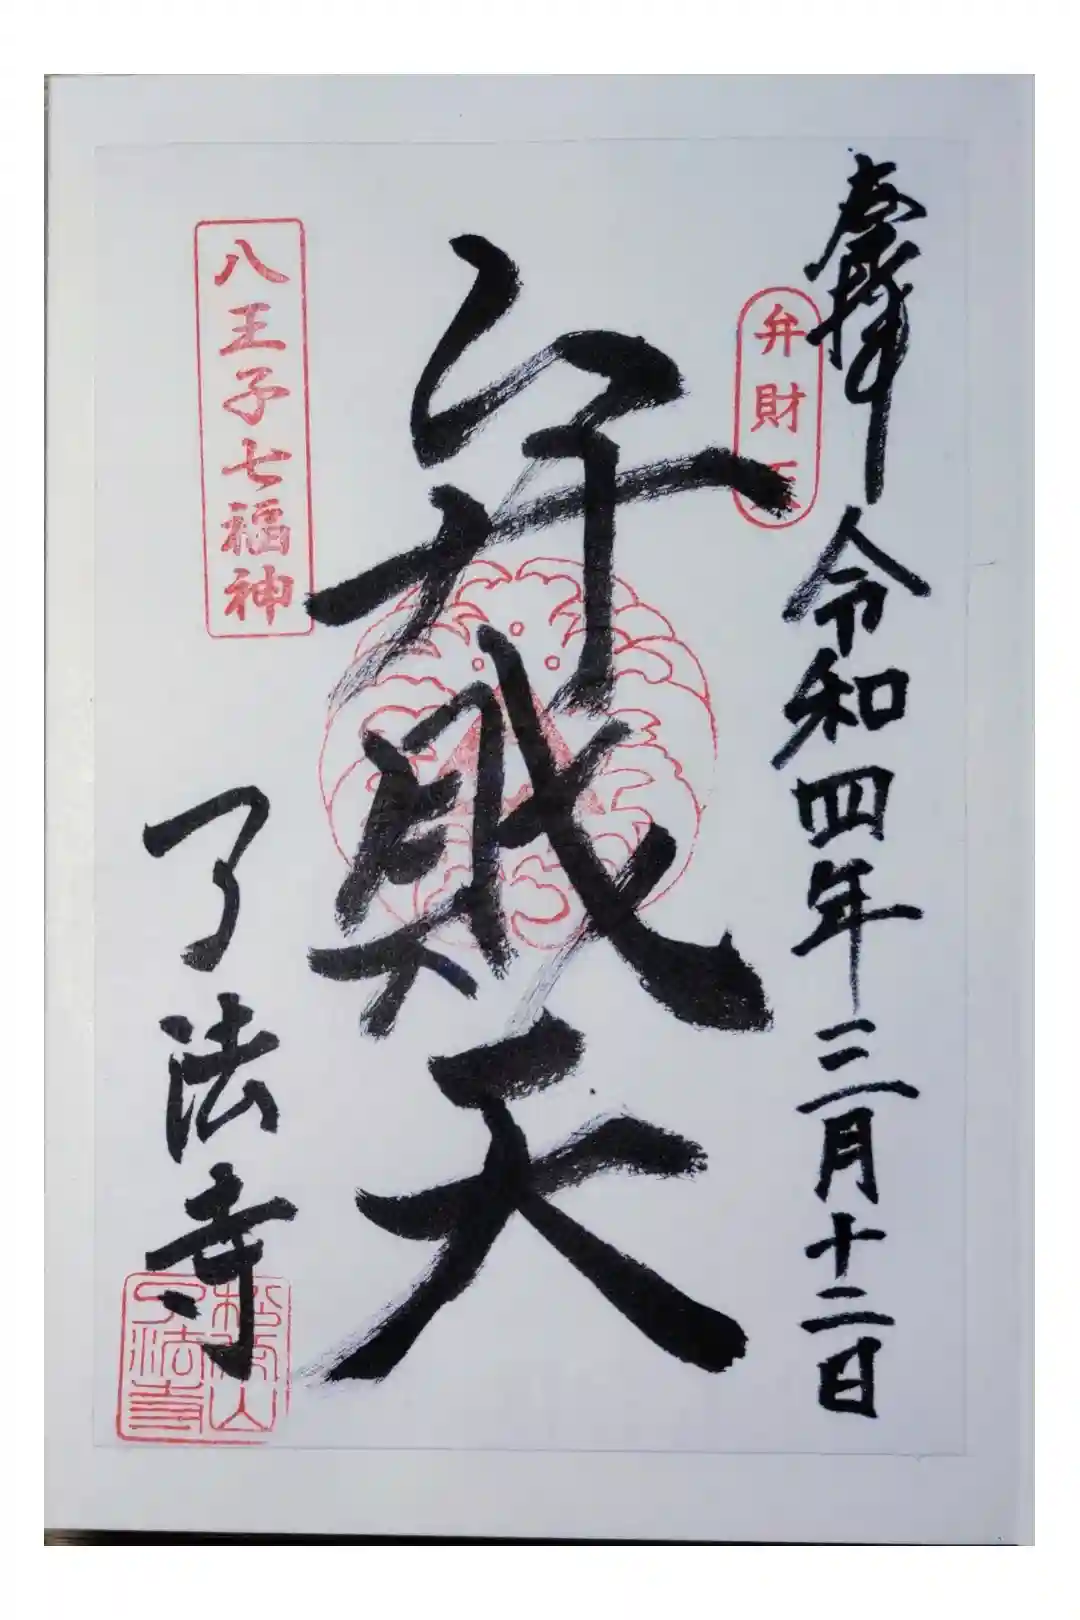 奉拝
令和四年三月十二日
弁財天
弁財天
八王子七福神
了法寺
松栄山
了法寺